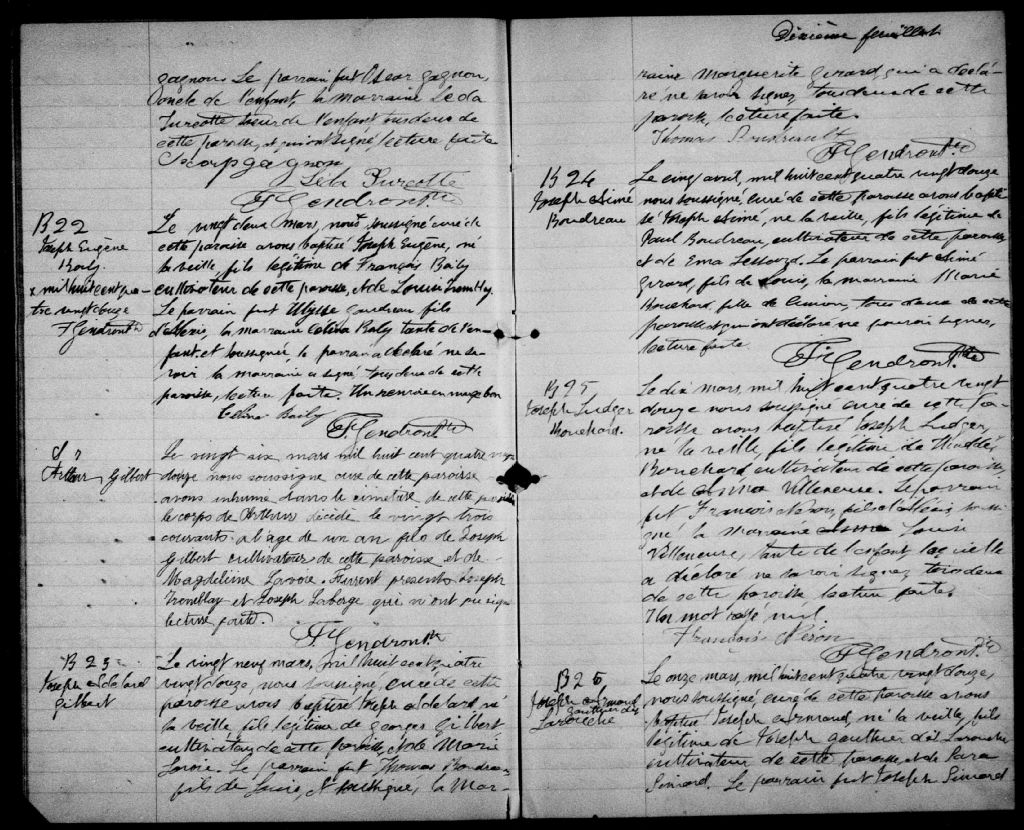 gagnon. Le parrain fut Oscar gagnon,
oncle de l'enfant, la marraine Leda
Turcotte soeur de l'enfant tous deux de
cette paroisse, et qui ont signé lecture faite
Oscar gagnon
Léda Turcotte
F. Gendron Ptre
B 22
Joseph Eugène
Baily
x mil huit cent qua
tre vingt douze
F Gendron Ptre
Le vingt deux Mars, nous soussigné curé de
cette paroisse avons baptisé Joseph Eugène, né
la veille, fils légitime de François Baily
cultivateur de cette paroisse, et de Louise Tremblay.
Le parrain fut Ulysse gaudreau fils
d'Alexis, la marraine Baily tante de l'en-
fant et soussignée, le parrain a déclaré ne sa-
voir la marraine a signé tous deux de cette
paroisse, lecture faite. Un renvoi en marge bon
Baily
F. Gendron Ptre
S 7
Arthur Gilbert
Le vingt six mars mil huit cent quatre vingt
douze nous soussigné curé de cette paroisse
avons inhumé dans le cimetière de cette paroisse
le corps de Arthur décédé le vingt trois
courant à l'age de un an fils de Joseph
Gilbert cultivateur de cette paroisse et de
Magdeleine Lavoie. Furent présents Joseph
Tremblay et Joseph Laberge qui n'ont pu signer
lecture faite.
F. Gendron Ptre
B 23
Joseph adelard
Gilbert
Le vingt neuf mars, mil huit cent quatre
vingt douze, nous soussigné, curé de cette
paroisse avons baptisé Joseph adelard né
la veille, fils légitime de georges Gilbert
cultivateur de cette paroisse, et de Marie
Lavoie. Le parrain fut Thomas Boudreau
fils de Louis, et soussigné, la Mar-
Dixième feuillet
raine Marguerite Girard, qui a décla-
ré ne savoir signer, tous deux de cette
paroisse, lecture faite.
Thomas Boudreault
F Gendron Ptre
B 24
Joseph Aimé
Boudreau
Le cinq avril, mil huit cent quatre vingt douze
nous soussigné, curé de cette paroisse avons bapti-
sé Joseph Aimé, né la veille, fils légitime de
Paul Boudreau, cultivateur de cette paroisse
et de Ema Lessard. Le parrain fut Aimé
Girard, fils de Louis, la marraine Marie
Bouchard, fille de Simon, tous deux de cette
paroisse et qui ont déclaré ne pouvoir signer,
lecture faite.
F. Gendron. Ptre
B 25
Joseph Ludger
Bouchard.
Le dix mars, mil huit cent quatre vingt
douze nous soussigné curé de cette Pa-
roisse avons baptisé Joseph Ludger,
né la veille, fils légitime de
Bouchard cultivateur de cette paroisse
et de Villeneuve. Le parrain
fut François Néron, fils soussi-
gné la marraine Louise
Villeneuve, tante de l'enfant laquelle
a déclaré ne savoir signer, tous deux
de cette paroisse lecture faite.
Un mot rayé nul.
François Néron
F Gendron Ptre
B 26
Joseph armand
gauthier dit
Larouche
Le onze mars, mil huit cent quatre vingt douze,
nous soussigné curé de cette paroisse avons
baptisé Joseph armand, né la veille, fils
légitime de Joseph gauthier dit Larouche
cultivateur de cette paroisse, et de Sara
Simard. Le parrain fut Joseph Simard